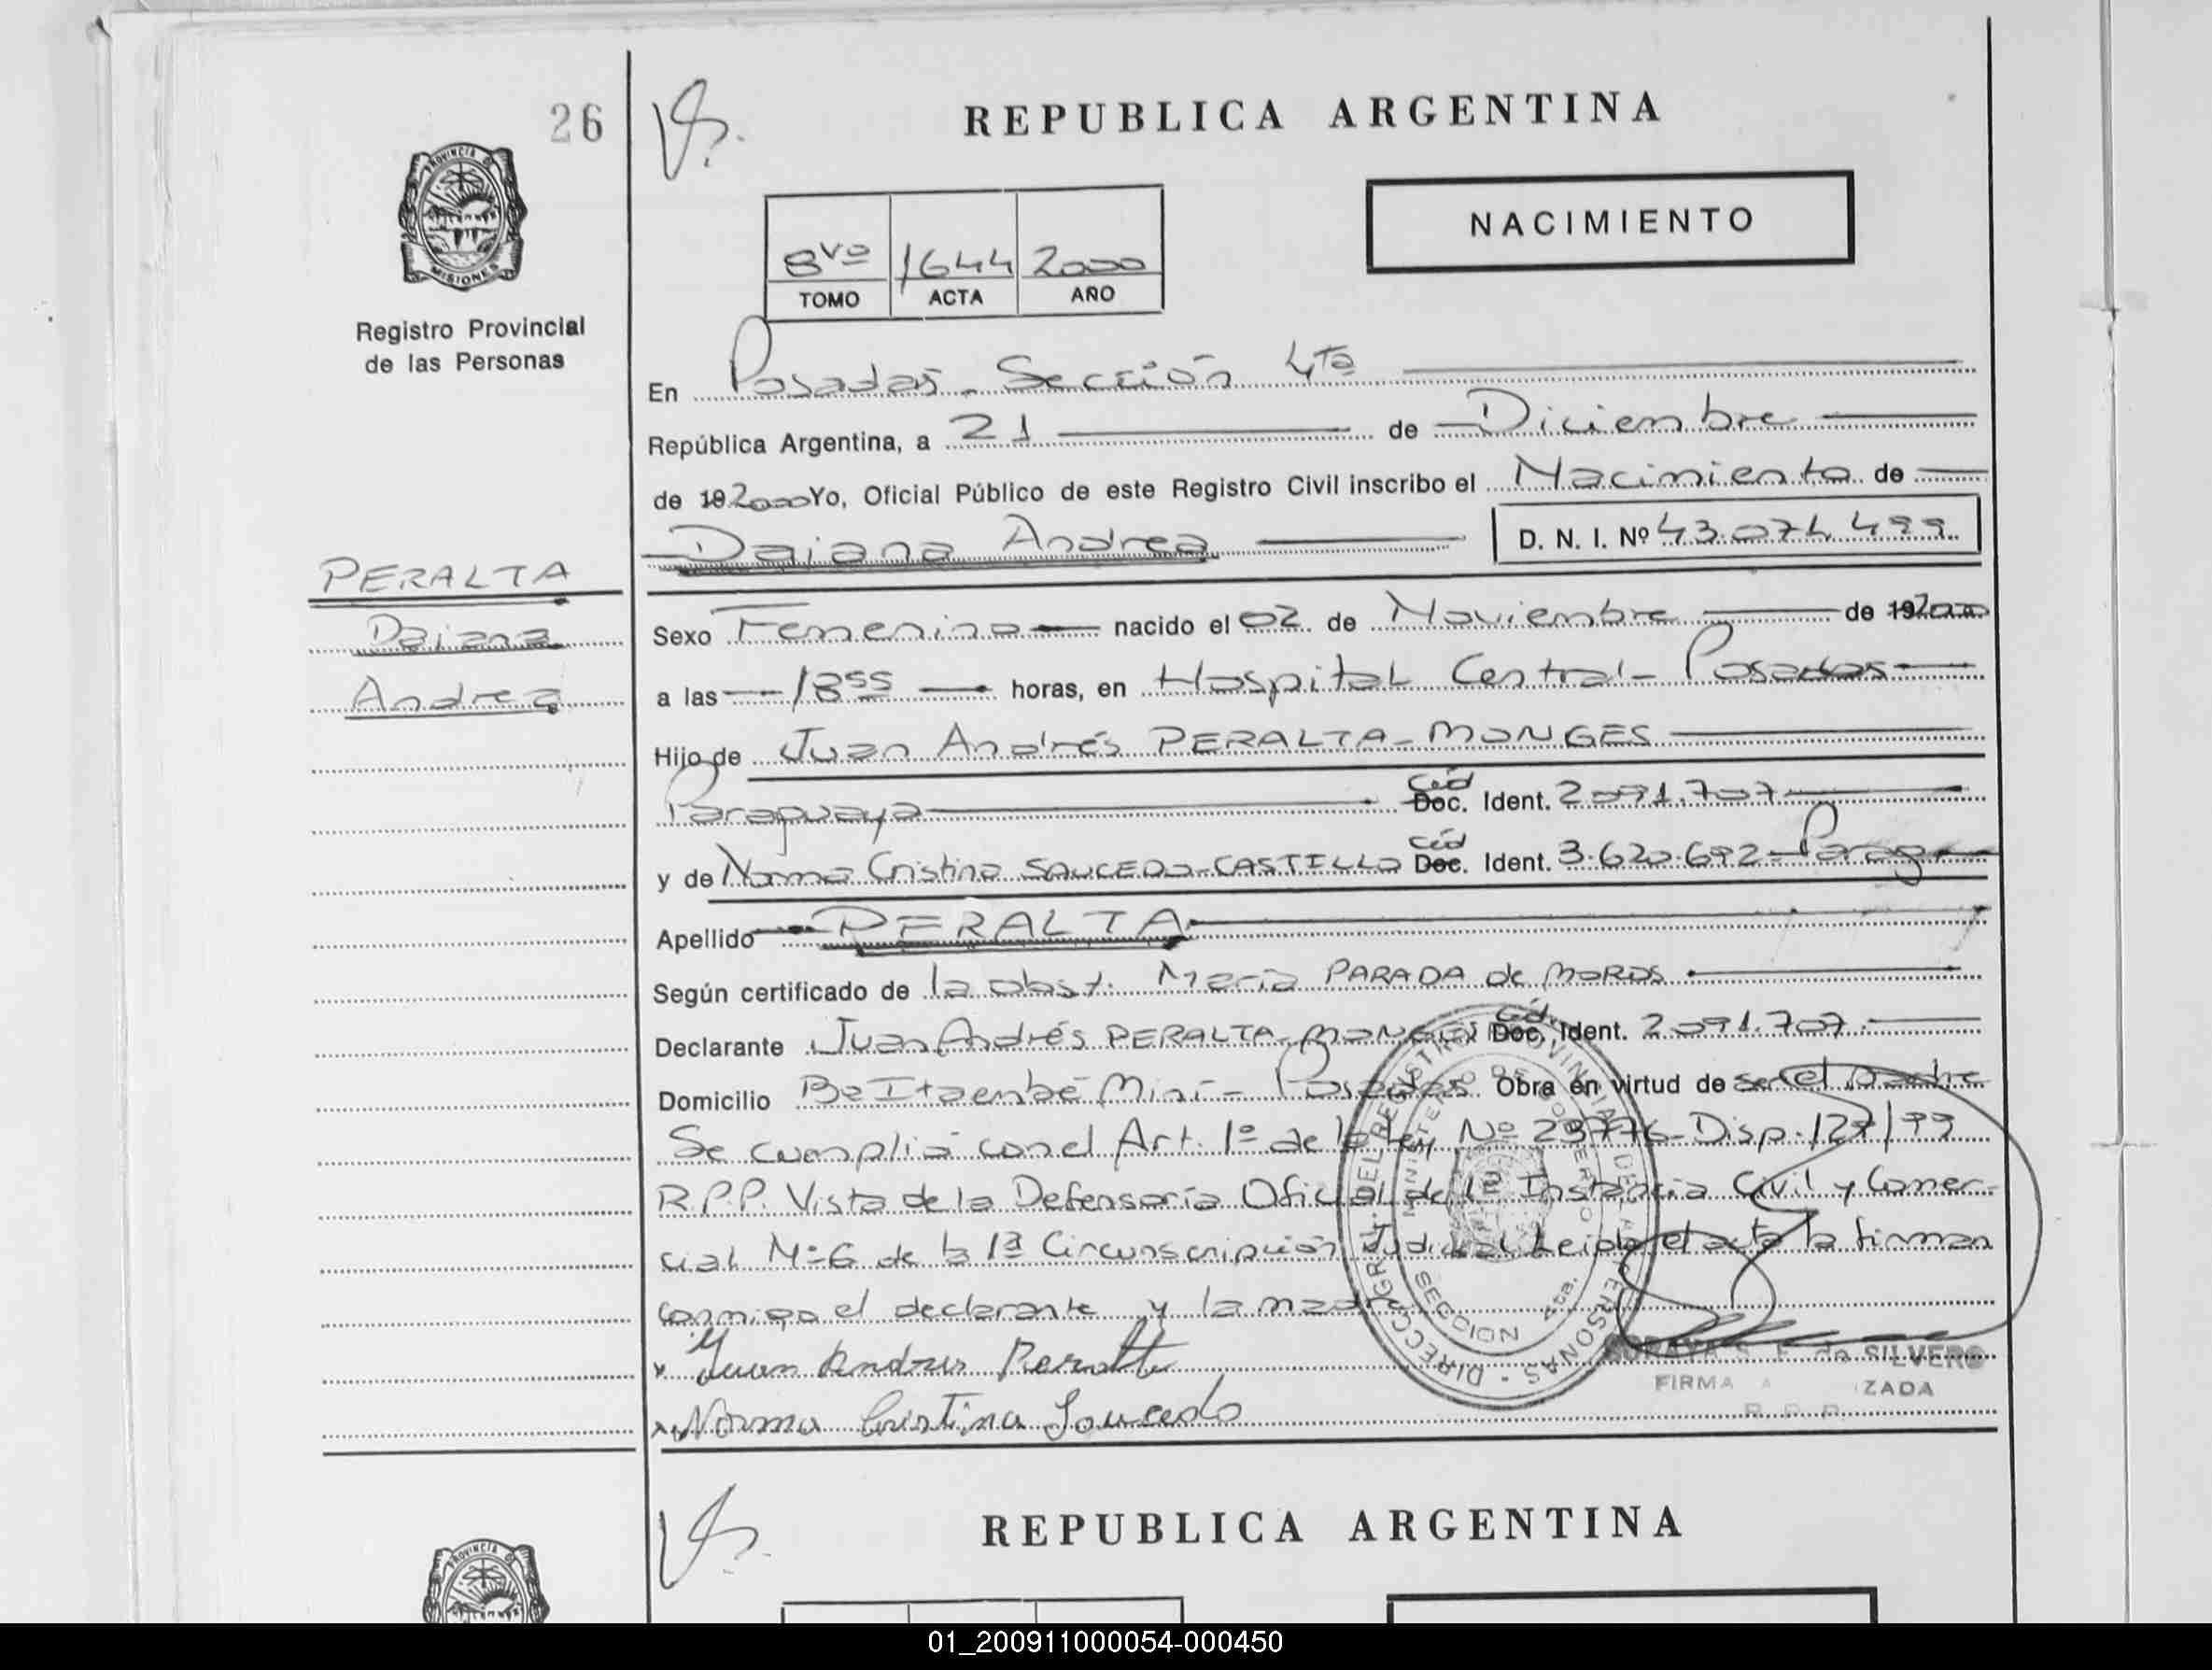 26
PROVINCIA DE
MISIONES
Registro Provincial
de las Personas
REPUBLICA ARGENTINA
NACIMIENTO
8vo 1644 2000
TOMO ACTA AÑO
En Posadas - Sección 4ta
República Argentina, a 21 de Diciembre
de 19 2000 Yo, Oficial Público de este Registro Civil inscribo el Nacimiento de
Daiana Andrea D. N. I. Nº 43.074.499
PERALTA
Daiana
Andrea
Sexo Femenino nacido el 02 de Noviembre de 19 2000
a las 18 55 horas, en Hospital Central - Posadas
Hijo de Juan Andrés PERALTA - MONGES
Paraguaya Céd Doc. Ident. 2091.707
y de Norma Cristina SAUCEDO - CASTILLO Céd Doc. Ident. 3.620.692 - Parag
Apellido PERALTA
Según certificado de la obst. María PARADA de MOROS
Declarante Juan Andrés PERALTA - MONGES Céd. Doc. Ident. 2091.707
Domicilio Bo Itaembé Miní - Posadas Obra en virtud de ser el padre
Se cumplió con el Art. 1º de la Ley Nº 23776 - Disp. 127/99
R.P.P. Vista de la Defensoría Oficial de 1ª Instancia Civil y Comer-
cial Nº 6 de la 1ª Circunscripción Judicial Leída el acta la firman
conmigo el declarante y la madre
x Juan Andres Peralta
x Norma Cristina Saucedo
DIRECC. GRAL. DEL REGISTRO PROVINCIAL DE LAS PERSONAS
MINISTERIO DE GOBIERNO
SECCION 4ta.
de SILVERO
FIRMA ZADA
R. P. P.
REPUBLICA ARGENTINA
PROVINCIA DE
01_200911000054-000450